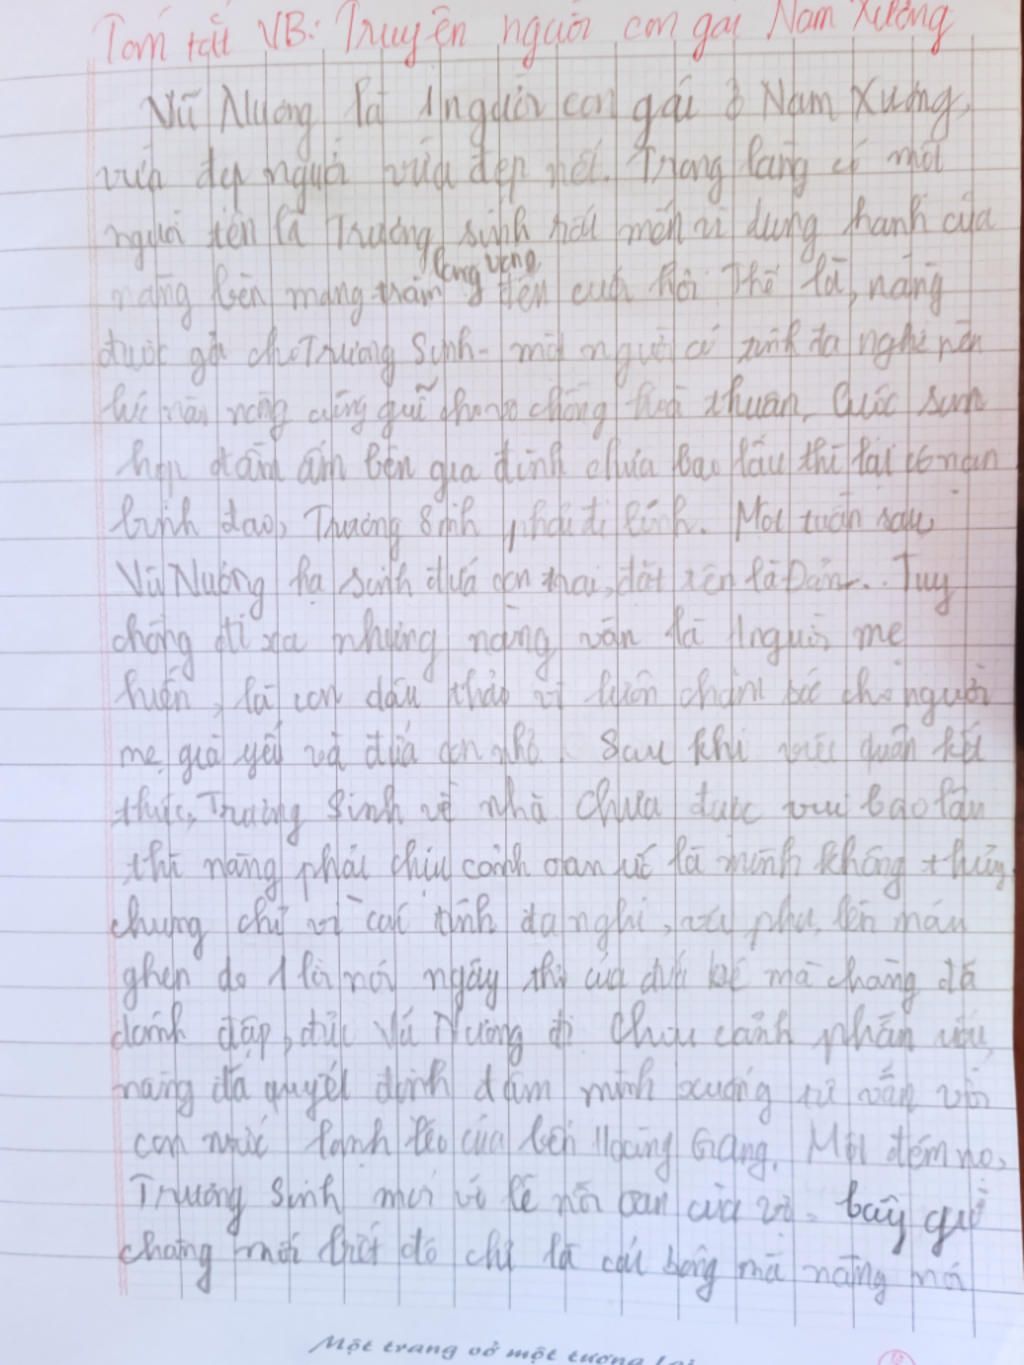 Tóm tắt VB: Truyện người con gái Nam Xương
Vũ Nương là 1 người con gái ở Nam Xương,
vừa đẹp người vừa đẹp nết. Trong làng có một
người tên là Trương Sinh mến vì dung hạnh của
lạng vàng
nàng bèn mang trăm đến cưới hỏi Thế là, nàng
được gả cho Trương Sinh - một người có tính đa nghi nên
lúc nào nàng cũng giữ cho vợ chồng hoà thuận. Cuộc sum
họp đầm ấm bên gia đình chưa bao lâu thì lại có nạn
binh đao, Trương Sinh phải đi lính. Một tuần sau,
Vũ Nương hạ sinh đứa con trai, đặt tên là Đản. Tuy
chồng đi xa nhưng nàng vẫn là 1 người mẹ
hiền, là con dâu thảo vì luôn chăm sóc cho người
mẹ già yếu và đứa con nhỏ. Sau khi việc quân kết
thúc, Trương Sinh về nhà chưa được vui bao lâu
thì nàng phải chịu cảnh oan ức là mình không thủy
chung chỉ vì cái tính đa nghi, lên máu
ghen do 1 lời nói ngây thơ của đứa bé mà chàng đã
đánh đập, đuổi Vũ Nương đi Chịu cảnh
nàng đã quyết định đâm mình xuống tự vẫn với
con nước lạnh lẽo của bến Hoàng Giang. Một đêm nọ,
Trương Sinh mới vỡ lẽ nỗi oan của vợ. bây giờ
chàng mới biết đó chỉ là cái bóng mà nàng nói
Một trang vở một tương lai